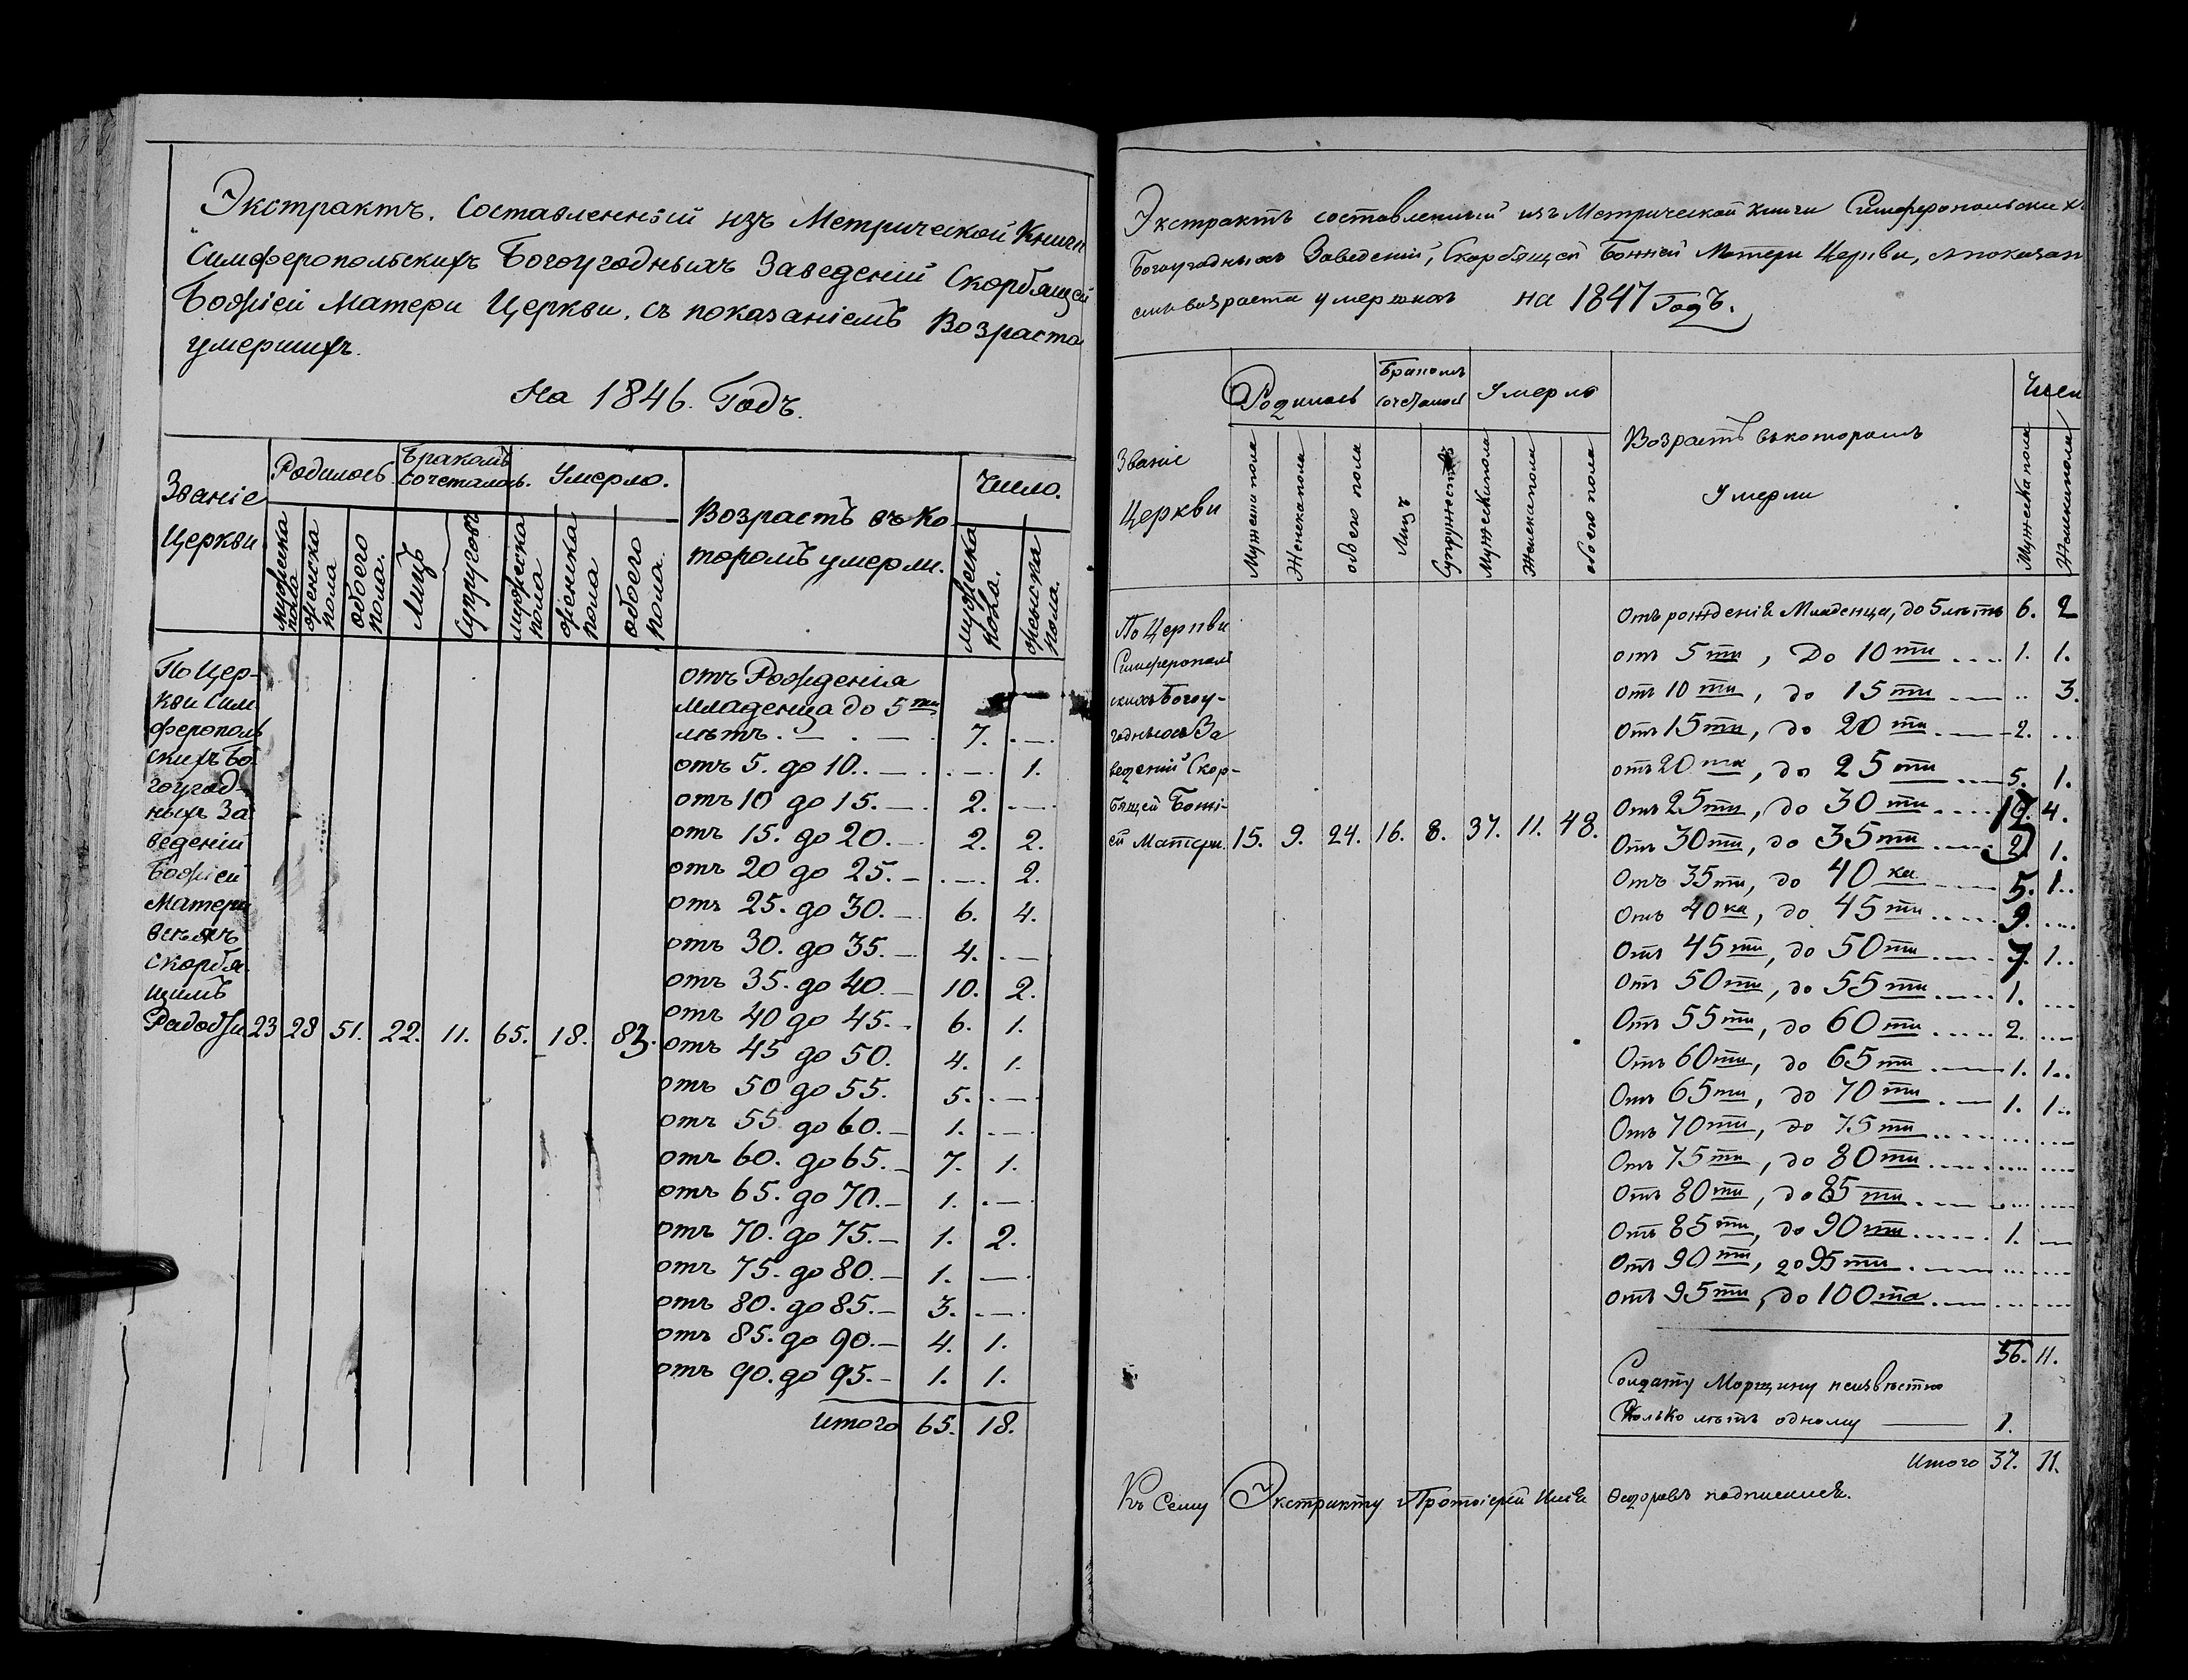 Экстрактъ. Составленный изъ Метрической Книги
Симферопольскихъ Богоугодныхъ Заведеній Скорбящей
Божіей Матери Церкви. съ показаніемъ Возраста
умершихъ.
На 1846. Годъ.
Званіе Церкви
Родилось.
Бракомъ Сочеталось.
Умерло.
Возрастъ въ ко-
торомъ умерли.
Число.
мужеска пола
женска пола
обоего пола.
Лицъ
Супруговъ
мужеска пола
женска пола
обоего пола.
мужеска пола.
женска пола.
По Цер-
кви Сим
ферополь
скихъ Бо
гоугод-
ныхъ За
веденій
Божіей
Матери
всѣхъ
скорбя
щимъ
Радости 23 28 51. 22. 11. 65. 18. 83.
отъ Рожденія
младенца до 5 ти
лѣтъ. — . — . 7. . —.
отъ 5. до 10.. — . . —. 1.
отъ 10 до 15. — . 2. . —.
отъ 15. до 20. — . 2. 2.
отъ 20 до 25. — . —. 2.
отъ 25. до 30. — 6. 4.
отъ 30. до 35. — 4. . —
отъ 35. до 40. — 10. 2.
отъ 40 до 45. - 6. 1.
отъ 45 до 50. 4. 1.
отъ 50 до 55. 5. . —.
отъ 55 до 60. — 1. . —.
отъ 60. до 65. — 7. 1.
отъ 65. до 70. — 1. . —.
отъ 70. до 75. — 1. 2.
отъ 75. до 80. — 1. —.
отъ 80. до 85. — 3. . —.
отъ 85. до 90. — 4. 1.
отъ 90. до 95. — 1. 1.
итого 65. 18.
Экстрактъ составленный изъ Метрической книги Симферопольскихъ
Богоугодныхъ Заведеній, Скорбящей Божіей Матери Церкви, съ показан
емъ возраста умершихъ на 1847 Годъ.
Званіе
Церкви
Родилось
Бракомъ сочеталось
Умерло
Возрастъ въ которомъ
Умерли
Числ
Мужеска пола
Женска пола
обоего пола
Лицъ
Супружествъ
Мужеска пола
Женска пола
обоего пола
Мужеска пола
Женска пола
По Церкви
Симферополь
скихъ Богоу-
годныхъ За
веденій Скор-
бящей Божі-
ей Матери. 15. 9. 24. 16. 8. 37. 11. 48.
Отъ рожденія Младенца, до 5 лѣтъ 6. 2
отъ 5 ти, до 10 ти .... 1. 1.
отъ 10 ти, до 15 ти — .. 3.
отъ 15 ти, до 20 ти. — 2. ..
отъ 20 ти, до 25 ти — 5. 1.
Отъ 25 ти, до 30 ти .... 4.
Отъ 30 ти, до 35 ти .... 2. 1.
Отъ 35 ти, до 40 ка .... 5. 1..
Отъ 40 ка, до 45 ти ..... 9. ....
Отъ 45 ти, до 50 ти .... 7. 1..
Отъ 50 ти, до 55 ти ..... 1. ....
Отъ 55 ти, до 60 ти ..... 2. ....
Отъ 60 ти, до 65 ти .— 1. 1..
Отъ 65 ти, до 70 ти .— 1. 1..
Отъ 70 ти, до 75 ти .... .... ....
Отъ 75 ти, до 80 ти .... .... ....
Отъ 80 ти, до 85 ти .— .... ....
Отъ 85 ти, до 90 ти ...... 1. —
Отъ 90 ти, до 95 ти .— .... ....
отъ 95 ти, до 100 та .— .... ....
36. 11.
Солдату Морщину неизвѣстно
Сколько лѣтъ одному — 1.
Итого 37. 11.
Къ Сему Экстракту Протоіерей Федоровъ подписался.